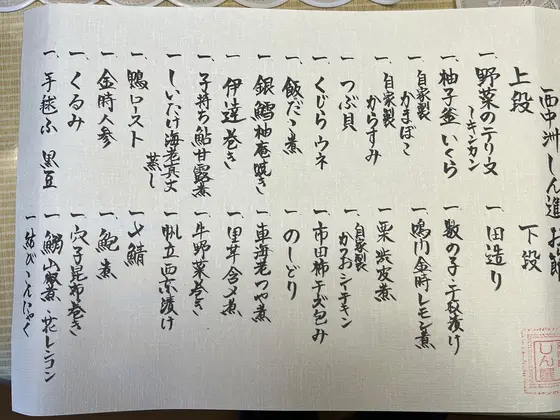 西中洲しん進 お節
上段
一、野菜のテリーヌ
ーキンカン
一、柚子釜いくら
一、自家製かまぼこ
一、自家製からすみ
一、つぶ貝
一、くじらウネ
一、飯だこ煮
一、銀鱈柚庵焼き
一、伊達巻き
一、子持ち鮎甘露煮
一、しいたけ海老真丈蒸し
一、鴨ロースト
一、金時人参
一、くるみ
一、手毬ふ 黒豆
下段
一、田造り
一、数の子・子秋漬け
一、鳴川金時レモン煮
一、栗渋皮煮
一、自家製かつおシーチキン
一、市田柿チーズ包み
一、のしどり
一、車海老つや煮
一、里芋含メ煮
一、牛野菜巻き
一、帆立西京漬け
一、〆鯖
一、鮑煮
一、穴子昆布巻き
一、鰯山椒煮・花レンコン
一、結びこんにゃく